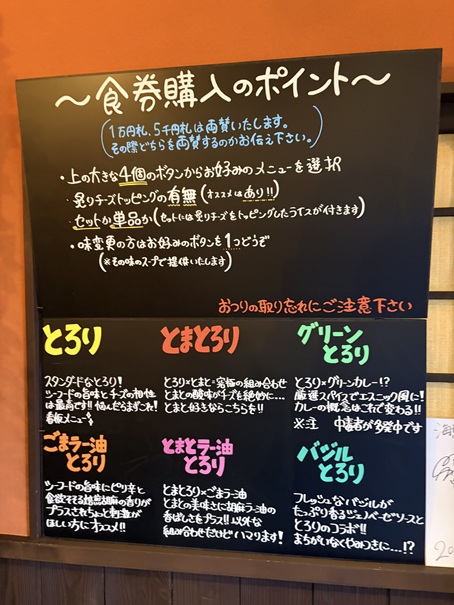 ～食券購入のポイント～
(1万円札、5千円札は両替いたします。
その際どちらを両替するのかお伝え下さい。)
・上の大きな4個のボタンからお好みのメニューを選択
・炙りチーズトッピングの有無(オススメはあり!!)
・セットか単品か(セットには炙りチーズをトッピングしたライスが付きます)
・味変更の方はお好みのボタンを1つどうぞ
(※その味のスープで提供いたします)
おつりの取り忘れにご注意下さい
とろり
スタンダードなとろり!
シーフードの旨味とチーズの相性
は最高です!!悩んだらまずこれ!
看板メニュー
とまとろり
とろり×とまと=究極の組み合わせ
とまとの酸味がチーズと絶妙に…
とまと好きならこちらを!!
グリーン
とろり
とろり×グリーンカレー!?
厳選スパイスでエスニック風に!
カレーの概念はこれで変わる!!
※注 中毒者が多発中です
ごまラー油
とろり
シーフードの旨味にピリ辛と
食欲そそる胡麻の香りが
プラスされちょっと刺激が
ほしい方にオススメ!!
とまとラー油
とろり
とまとろり×ごまラー油
とまとの美味さに胡麻ラー油の
香ばしさをプラス!!以外な
組み合わせだけどハマります!
バジル
とろり
フレッシュなバジルが
たっぷり香るジェノベーゼソースと
とろりのコラボ!!
まちがいなくやみつきに…!?
20